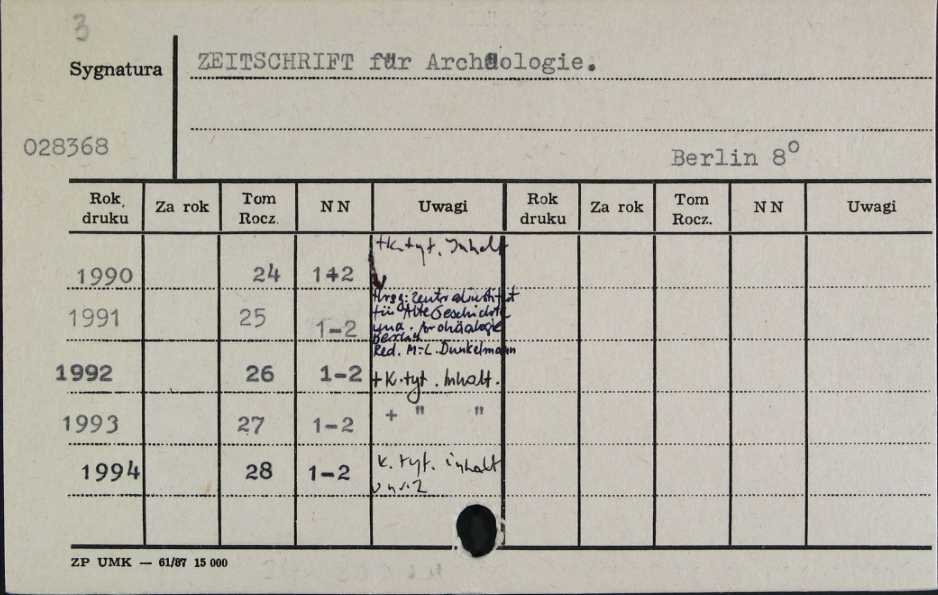 3
Sygnatura
ZEITSCHRIFT für Archäologie.
028368
Berlin 8°
Rok druku Za rok Tom Rocz. NN Uwagi Rok druku Za rok Tom Rocz. NN Uwagi
+k.tyt. Inhalt
1990 24 1+2
Hrsg: Zentralinstitut
1991 25 1-2 für Alte Geschichte
und Archäologie
Berlin
Red. M-L. Dunkelmann
1992 26 1-2 +k.tyt. Inhalt.
1993 27 1-2 + " "
1994 28 1-2 k. tyt. inhalt
ZP UMK — 61/87 15 000